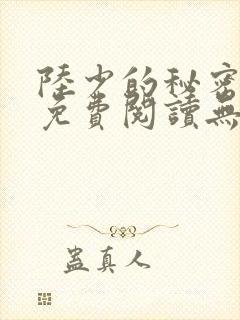 陸少的秘密
免費閱讀無
蠱真人